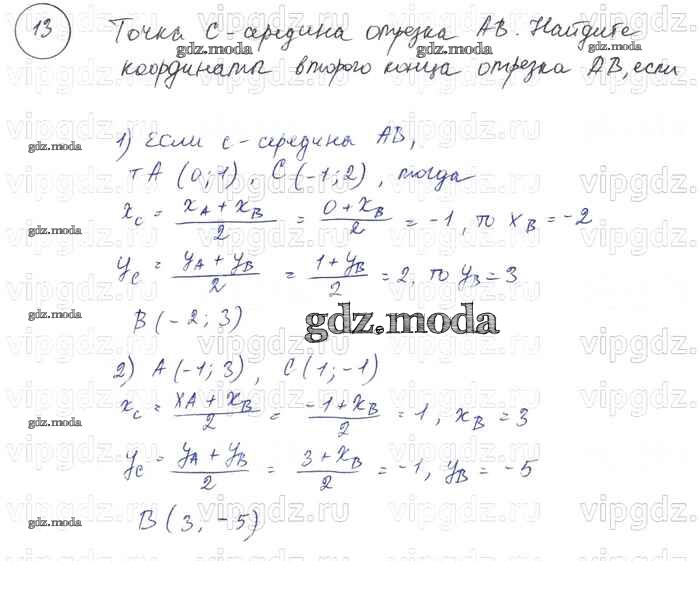 13 Точка С - середина отрезка АВ. Найдите
координаты второго конца отрезка АВ, если
1) Если с - середины АВ,
т А (0; 1), С (-1; 2), тогда
x_C = (x_A + x_B)/2 = (0 + x_B)/2 = -1, то x_B = -2
y_C = (y_A + y_B)/2 = (1 + y_B)/2 = 2, то y_B = 3
В (-2; 3)
gdz.moda
2) А (-1; 3), С (1; -1)
x_C = (xA + x_B)/2 = (-1 + x_B)/2 = 1, x_B = 3
y_C = (y_A + y_B)/2 = (3 + x_B)/2 = -1, y_B = -5
В (3, -5)